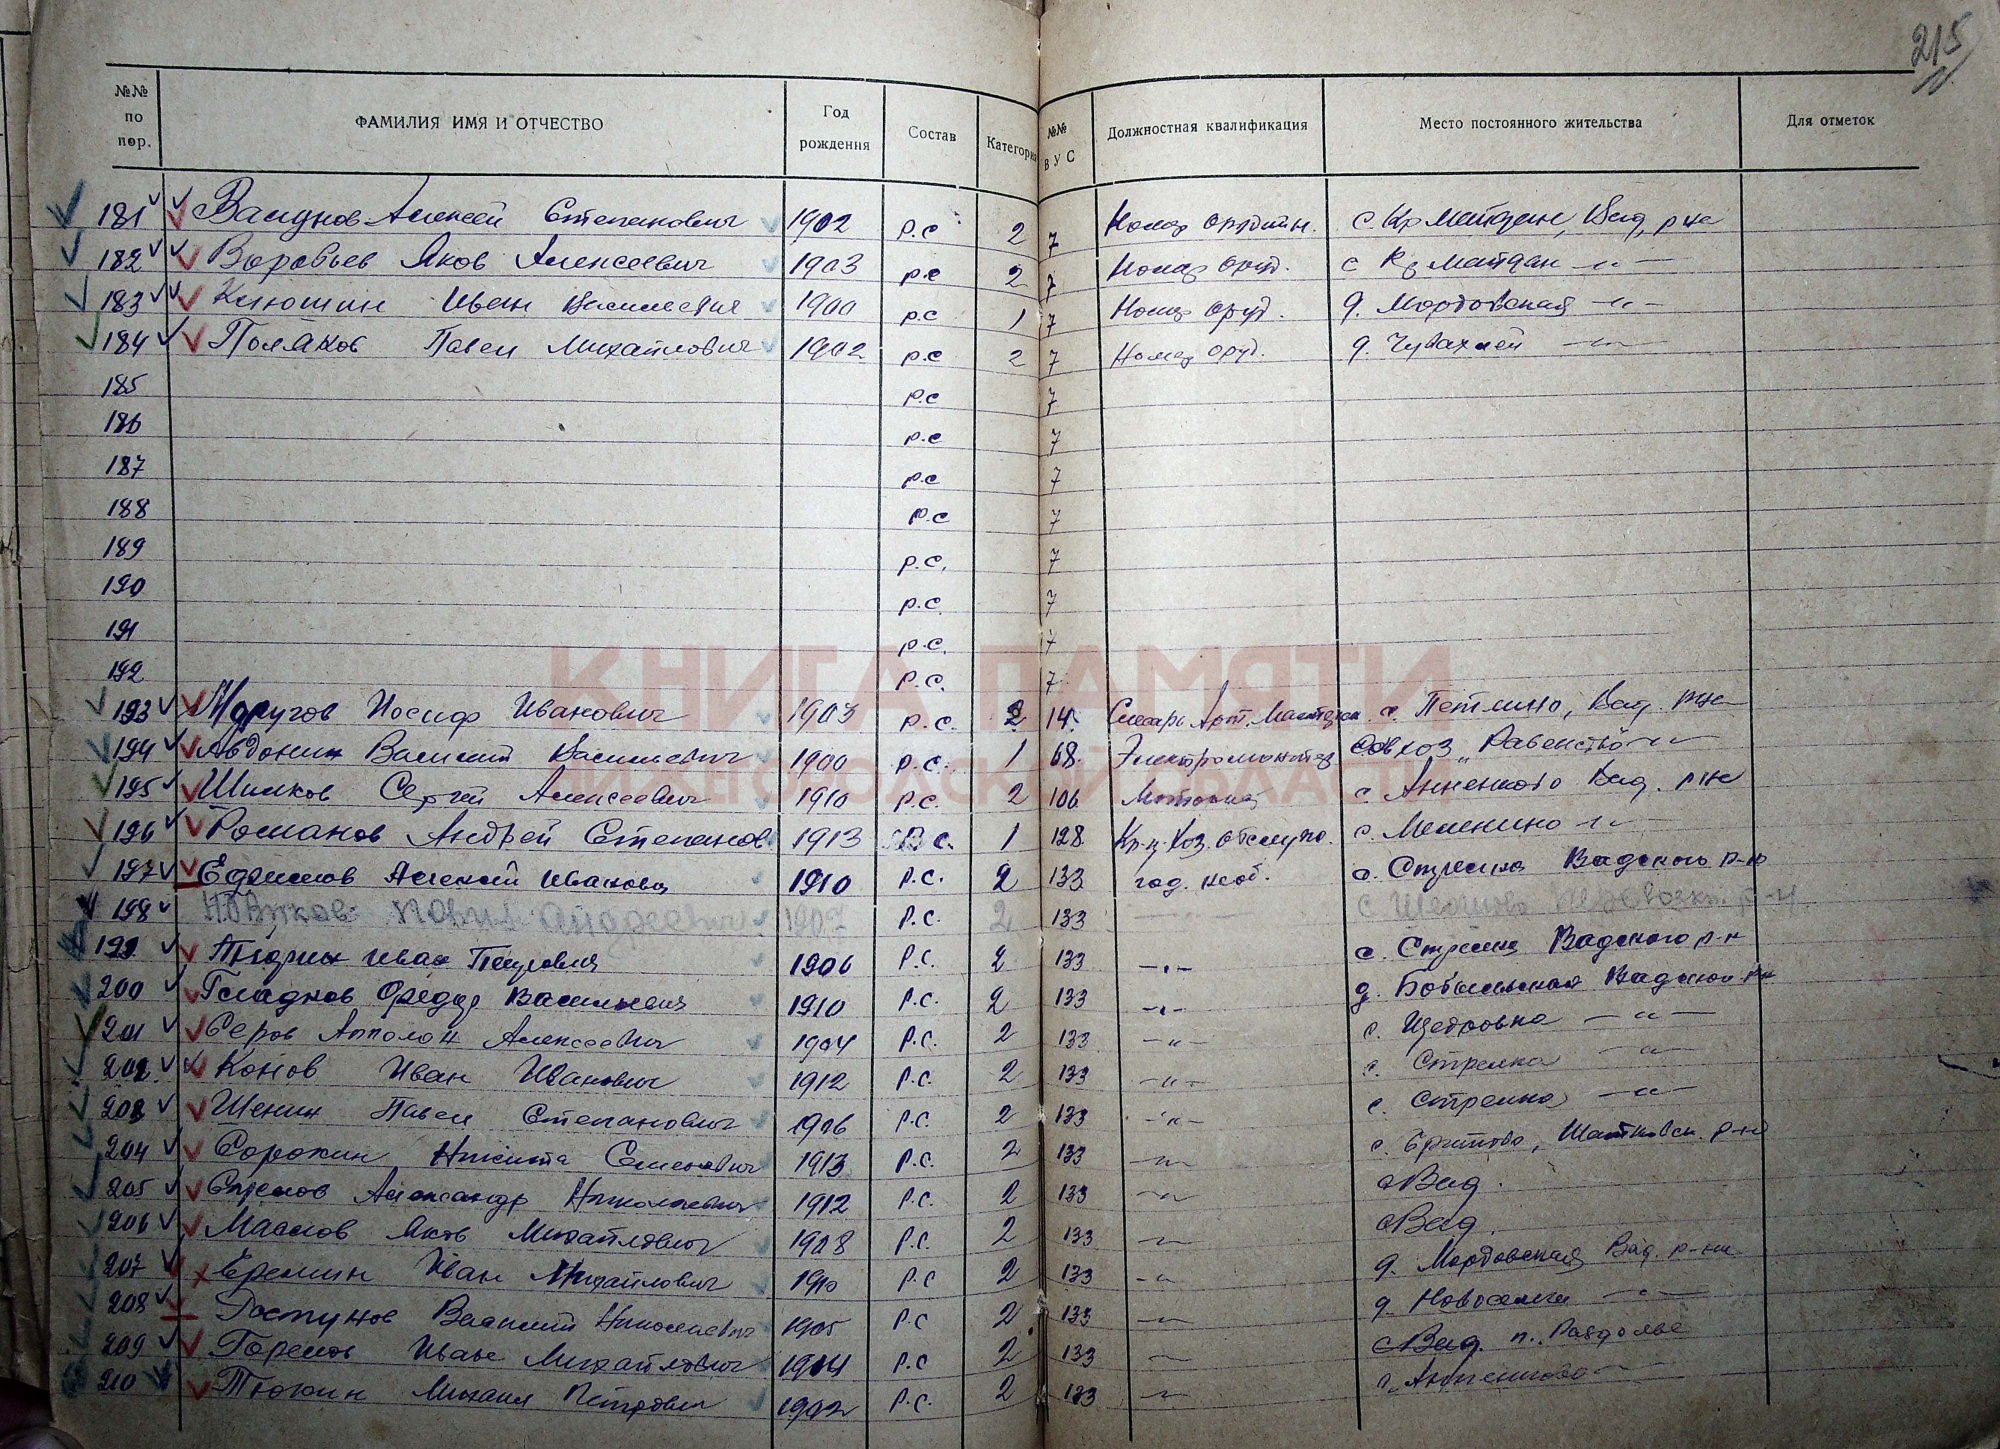 215
№№ по пор. ФАМИЛИЯ ИМЯ И ОТЧЕСТВО Год рождения Состав Категория №№ ВУС Должностная квалификация Место постоянного жительства Для отметок
181 Алексей Степанович 1902 р.с 2 7 Номер орудийн. с. Кр Майдан, Вад, р-на
182 Воробьев Яков Алексеевич 1903 р.с 2 7 Номер оруд. с Кр Майдан -"-
183 Клюшин Иван Васильевич 1900 р.с 1 7 Номер оруд. д. Мордовская -"-
184 Поляков Павел Михайлович 1902 р.с 2 7 Номер оруд. д. Чувахлей -"-
185 р.с 7
186 р.с 7
187 р.с 7
188 р.с 7
189 р.с. 7
190 р.с. 7
191 р.с. 7
192 р.с. 7
КНИГА ПАМЯТИ
193 Иосиф Иванович 1903 р.с. 2 14 Слесарь Арт. с. Петлино, Вад. р-на
194 Авдонин Василий Васильевич 1900 р.с. 1 68. Электромонтер Совхоз „Равенство -"-
НИЖЕГОРОДСКОЙ ОБЛАСТИ
195 Шилков Сергей Алексеевич 1910 р.с. 2 106 с. Анненково Вад. р-на
196 Романов Андрей Степанов. 1913 с. 1 128 Кр-ц. Хоз. обслуж. с. Меленино -"-
197 Ефимов Алексей Иванович 1910 р.с. 2 133 год. необ. с. Стрелка Вадского р-н
198 Новиков Павил Андреевич 1907 р.с. 2 133 с. Перевозкт. р-н.
199 Иван Петрович 1906 р.с. 2 133 -"- с. Стрелка Вадского р-н
200 Гладков Федор Васильевич 1910 р.с. 2 133 -"- д. Бобыльская Вадског р-н
201 Серов Апполон Алексеевич 1904 р.с. 2 133 -"- с. Щедровка -"-
202 Конов Иван Иванович 1912 р.с. 2 133 -"- с. Стрелка -"-
203 Шенин Павел Степанович 1906 р.с. 2 133 -"- с. Стрелка -"-
204 Сорокин Никита Семенович 1913 р.с. 2 133 -"- с. Шатковск. р-на
205 Александр Николаевич 1912 р.с. 2 133 -"- с Вад.
206 Маслов Яков Михайлович 1908 р.с. 2 133 -"- с Вад.
207 Еремин Иван Михайлович 1910 р.с 2 133 -"- д. Мордовская Вад. р-на
208 Василий Николаевич 1905 р.с 2 133 -"- д. Новоселки -"-
209 Горелов Иван Михайлович 1904 р.с 2 133 -"- с Вад. п. Раздолье
210 Тюкин Михаил Петрович 1902 р.с. 2 133 -"- с. Анненково -"-